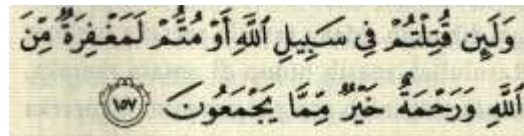 وَلَئِن قُتِلْتُمْ فِى سَبِيلِ ٱللَّهِ أَوْ مُتُّمْ لَمَغْفِرَةٌ مِّنَ
ٱللَّهِ وَرَحْمَةٌ خَيْرٌ مِّمَّا يَجْمَعُونَ ١٥٧